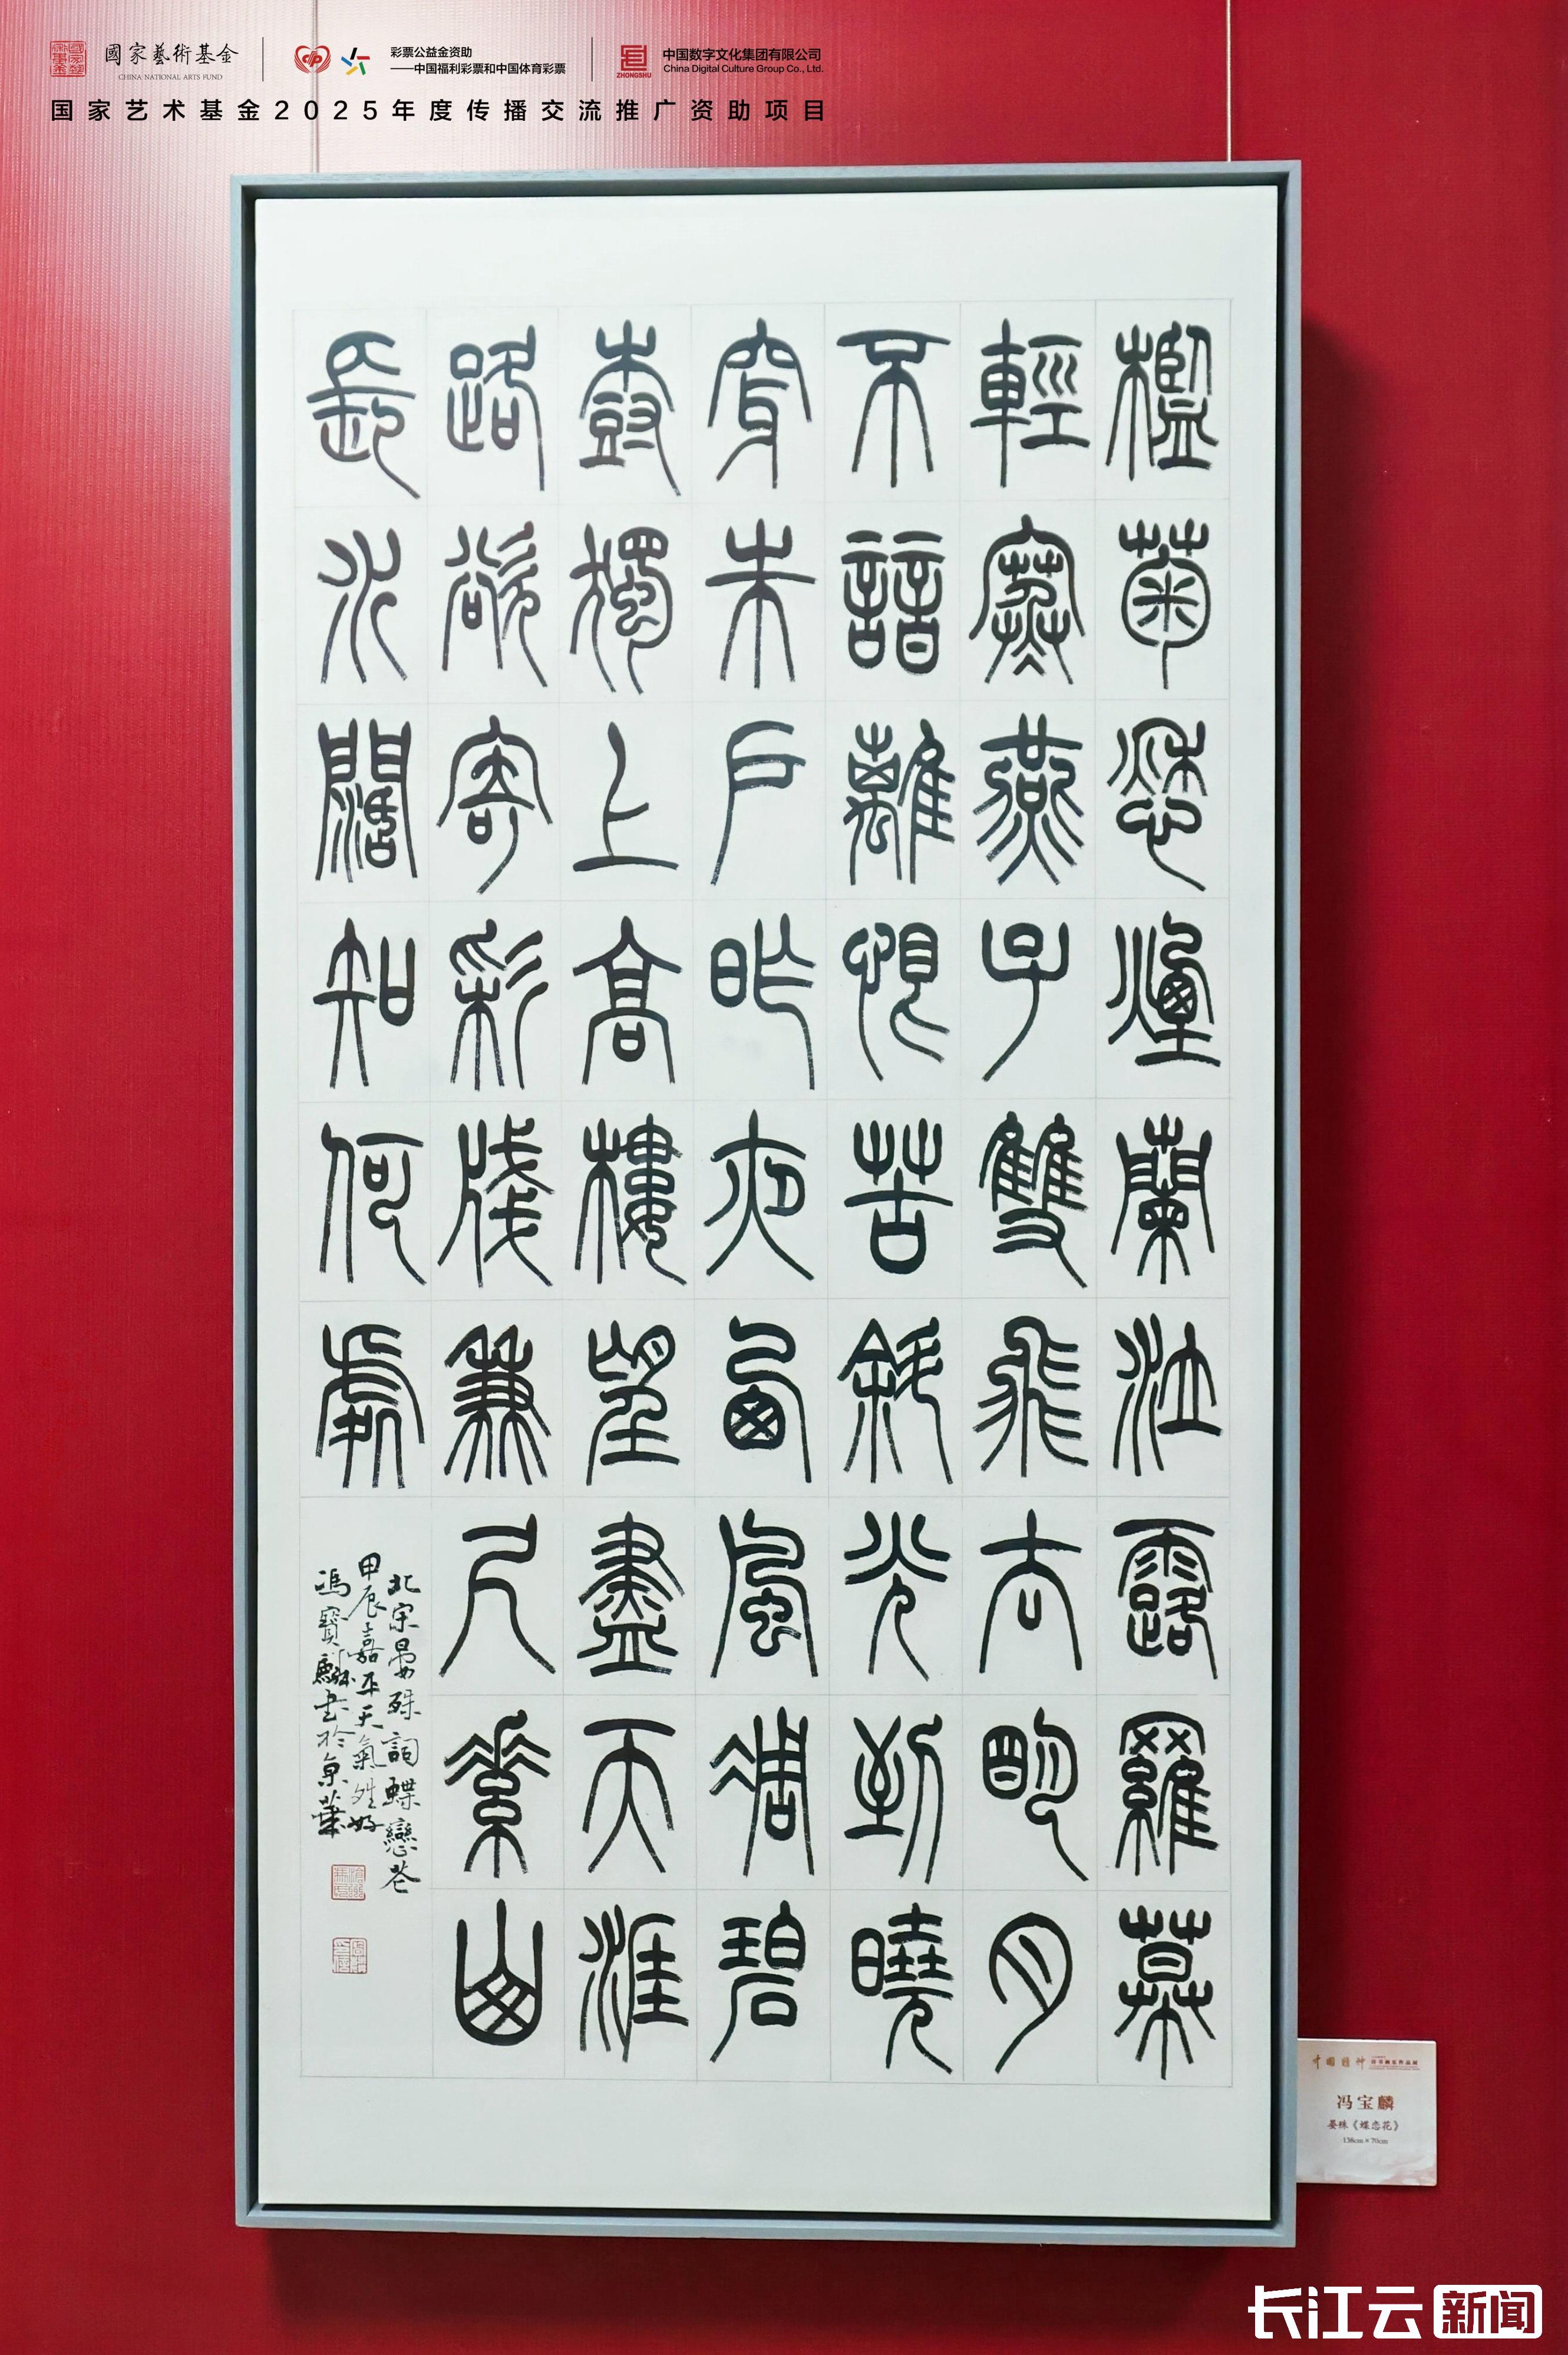 國家藝術基金
CHINA NATIONAL ARTS FUND
彩票公益金资助
——中国福利彩票和中国体育彩票
ZHONGSHU
中国数字文化集团有限公司
China Digital Culture Group Co., Ltd.
国家艺术基金2025年度传播交流推广资助项目
檻菊愁煙蘭泣露羅幕
輕寒燕子雙飛去明月
不諳離恨苦斜光到曉
穿朱戶昨夜西風凋碧
樹獨上高樓望盡天涯
路欲寄彩牋兼尺素山
長水闊知何處
北宋晏殊詞蝶戀花
甲辰嘉平天氣好
馮寶麟書於京華
中国精神
冯宝麟
晏殊《蝶恋花》
138cm×70cm
长江云新闻